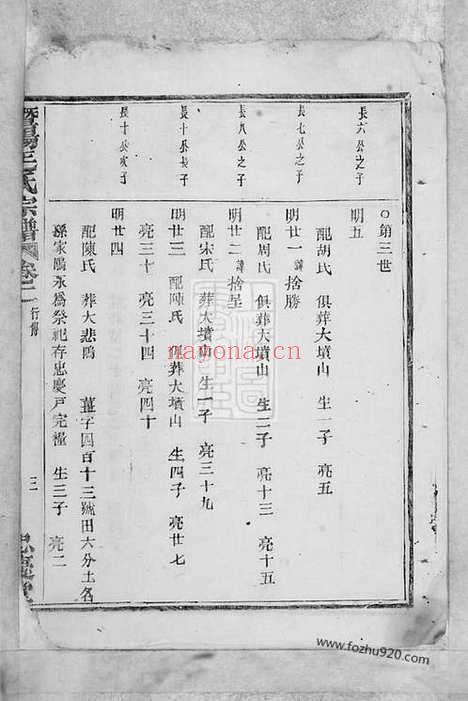 ○第三世
長六公之子
明五
配胡氏 俱葬大墳山 生一子 亮五
長七公之子
明廿一 諱捨勝
配周氏 俱葬大墳山 生二子 亮十三 亮十五
長八公之子
明廿二 諱捨呈
配宋氏 葬大墳山 生一子 亮三十九
長十公長子
明廿三 配陳氏 俱葬大墳山 生四子 亮廿七
亮三十 亮三十四 亮四十
長十公次子
明廿四
配陳氏 葬大悲塢 薑字四百十三號田六分土名
孫家 永為祭祀存忠慶戶完糧 生三子 亮二
暨陽王氏宗譜 卷之二 行傳 三
nanona.cn
www.fozhu920.com